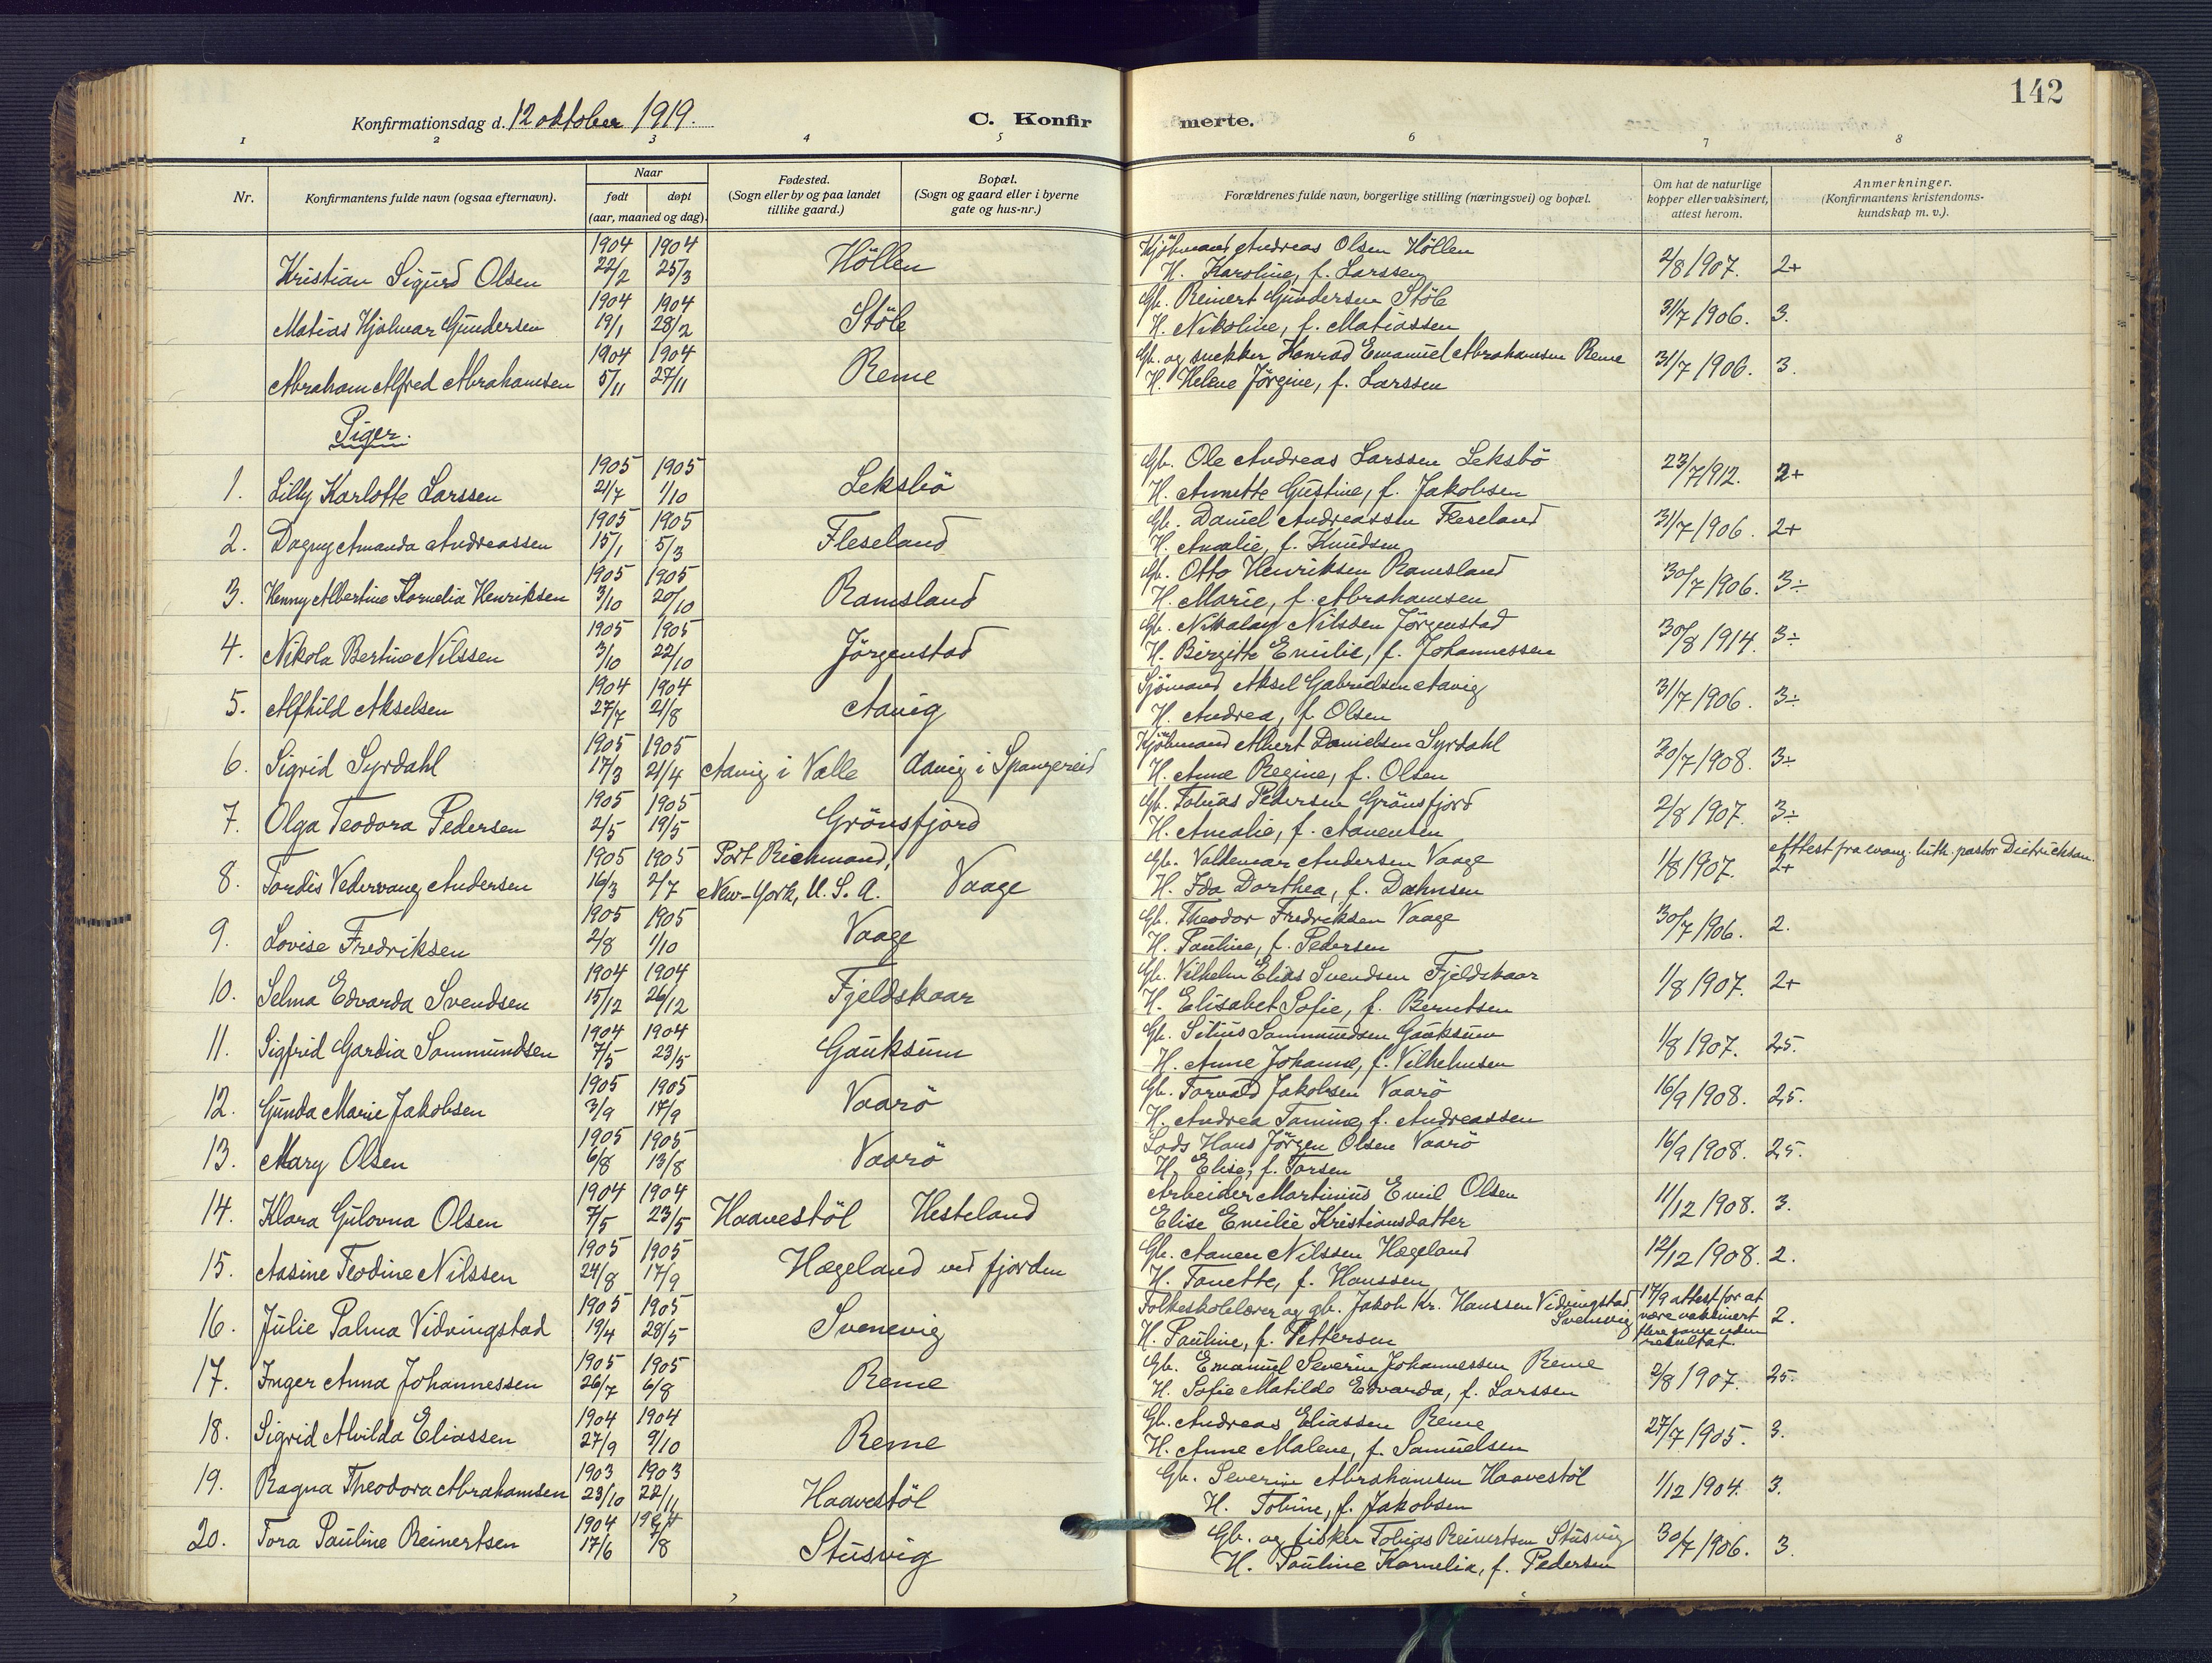 142
Konfirmationsdag d. 12 oktober 1919.
C. Konfirmerte.
1 2 3 4 5 6 7 8
Nr. Konfirmantens fulde navn (ogsaa efternavn). Naar født døpt (aar, maaned og dag). Fødested. (Sogn eller by og paa landet tillike gaard.) Bopæl. (Sogn og gaard eller i byerne gate og hus-nr.) Forældrenes fulde navn, borgerlige stilling (næringsvei) og bopæl. Om hat de naturlige kopper eller vaksinert, attest herom. Anmerkninger. (Konfirmantens kristendoms-kundskap m. v.).
1904 1904 Kjöbmand Andreas Olsen Höllen
Kristian Sigurd Olsen 22/2 25/3 Höllen H. Karoline, f. Larssen 2/8 1907. 2+
1904 1904 Gb. Reinert Gundersen Stöle
Matias Hjalmar Gundersen 19/1 28/2 Stöle H. Nikoline, f. Matiassen 31/7 1906. 3.
1904 1904 Gb. og snekker Konrad Emanuel Abrahamsen Reme
Abraham Alfred Abrahamsen 5/11 27/11 Reme H. Helene Jörgine, f. Larssen 31/7 1906. 3.
Piger.
1905 1905 Gb. Ole Andreas Larssen Leksbö
1. Lilly Karlotte Larssen 21/7 1/10 Leksbö H. Annette Gustine, f. Jakobsen 23/7 1912. 2+
1905 1905 Gb. Daniel Andreassen Fleseland
2. Dagny Amanda Andreassen 15/1 5/3 Fleseland H. Amalie, f. Knudsen 31/7 1906. 2+
1905 1905 Gb. Otto Henriksen Ramsland
3. Henny Albertine Kornelia Henriksen 3/10 20/10 Ramsland H. Marie, f. Abrahamsen 30/7 1906. 3÷
1905 1905 Gb. Nikolay Nilssen Jörgenstad
4. Nikola Bertine Nilssen 3/10 22/10 Jörgenstad H. Birgitte Emilie, f. Johannessen 30/8 1914. 3÷
1904 1904 Sjömand Aksel Gabrielsen Aavig
5. Alfhild Akselsen 27/7 21/8 Aavig H. Andrea, f. Olsen 31/7 1906. 3÷
1905 1905 Kjöbmand Albert Danielsen Syrdahl
6. Sigrid Syrdahl 17/3 21/4 Aavig i Valle Aavig i Spangereid H. Anne Regine, f. Olsen 30/7 1908. 3÷
1905 1905 Gb. Tobias Pedersen Grönsfjord
7. Olga Teodora Pedersen 2/5 19/5 Grönsfjord H. Amalie, f. Aanensen 2/8 1907. 3÷
1905 1905 Port Richmond, Gb. Valdemar Andersen Vaage Attest fra evang. luth. pastor Dietrichson.
8. Tordis Vedervang Andersen 16/3 2/7 New-York, U.S.A. Vaage H. Ida Dorthea, f. Dahnsen 1/8 1907. 2+
1905 1905 Gb. Theodor Fredriksen Vaage
9. Lovise Fredriksen 2/8 1/10 Vaage H. Pauline, f. Pedersen 30/7 1906. 2.
1904 1904 Gb. Vilhelm Elias Svendsen Fjeldskaar
10. Selma Edvarda Svendsen 15/12 26/12 Fjeldskaar H. Elisabet Sofie, f. Berntsen 1/8 1907. 2+
1904 1904 Gb. Silius Sammundsen Gauksum
11. Sigfrid Gardia Sammundsen 7/5 23/5 Gauksum H. Anne Johanne, f. Vilhelmsen 1/8 1907. 2,5.
1905 1905 Gb. Torvald Jakobsen Vaarö
12. Gunda Marie Jakobsen 3/9 17/9 Vaarö H. Andrea Tomine, f. Andreassen 16/9 1908. 2,5.
1905 1905 Lods Hans Jörgen Olsen Vaarö
13. Mary Olsen 6/8 13/8 Vaarö H. Elise, f. Torsen 16/9 1908. 2,5.
1904 1904 Arbeider Martinius Emil Olsen
14. Klara Gulovna Olsen 7/5 23/5 Haavestöl Hesteland Elise Emilie Kristiansdatter 11/12 1908. 3.
1905 1905 Gb. Aanen Nilssen Hægeland
15. Aasine Teodine Nilssen 24/8 17/9 Hægeland ved fjorden H. Tonette, f. Hanssen 12/12 1908. 2.
1905 1905 Folkeskolelærer og gb. Jakob Kr. Hanssen Vidringstad, Svenevig
16. Julie Palma Vidringstad 19/4 28/5 Svenevig H. Pauline, f. Pettersen 17/9 attest for at være vaksinert flere gange uden resultat. 2.
1905 1905 Gb. Emanuel Severin Johannessen Reme
17. Inger Anna Johannessen 26/7 6/8 Reme H. Sofie Matilde Edvarda, f. Larssen 2/8 1907. 2,5.
1904 1904 Gb. Andreas Eliassen Reme
18. Sigrid Alvilda Eliassen 27/9 9/10 Reme H. Anne Malene, f. Samuelsen 27/7 1905. 3.
1903 1903 Gb. Severin Abrahamsen Haavestöl
19. Ragna Theodora Abrahamsen 23/10 22/11 Haavestöl H. Tobine, f. Jakobsen 1/12 1904. 3.
1904 1904 Gb. og fisker Tobias Reinertsen Stusvig
20. Tora Pauline Reinertsen 17/6 7/8 Stusvig H. Pauline Kornelia, f. Pedersen 30/7 1906. 3.